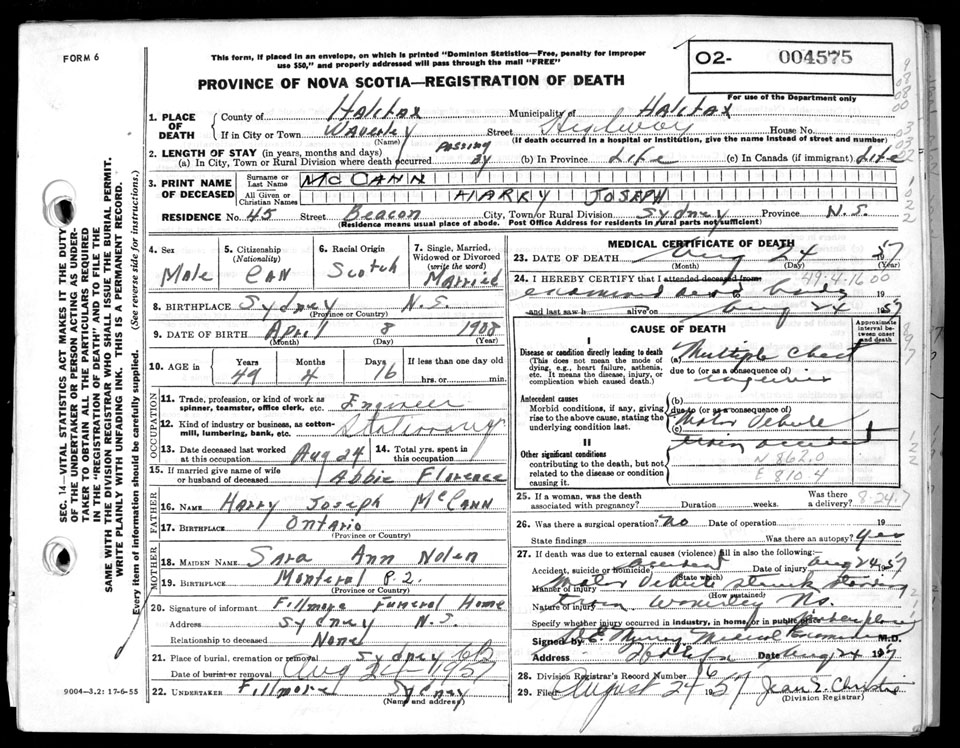 FORM 6
This form, if placed in an envelope, on which is printed "Dominion Statistics—Free, penalty for improper
use $50," and properly addressed will pass through the mail "FREE"
O2- 004575
For use of the Department only
PROVINCE OF NOVA SCOTIA—REGISTRATION OF DEATH
1. PLACE OF DEATH
County of Halifax Municipality of Halifax
If in City or Town Waverley Street Highway House No.
(Name) (If death occurred in a hospital or institution, give the name instead of street and number)
2. LENGTH OF STAY (in years, months and days)
(a) In City, Town or Rural Division where death occurred Passing By (b) In Province Life (c) In Canada (if immigrant) Life
3. PRINT NAME OF DECEASED
Surname or Last Name McCANN
All Given or Christian Names HARRY JOSEPH
RESIDENCE No. 45 Street Beacon City, Town or Rural Division Sydney Province N.S.
(Residence means usual place of abode. Post Office Address for residents in rural parts not sufficient)
4. Sex Male
5. Citizenship (Nationality) Can
6. Racial Origin Scotch
7. Single, Married, Widowed or Divorced (write the word) Married
8. BIRTHPLACE Sydney N.S.
(Province or Country)
9. DATE OF BIRTH April 8 1908
(Month) (Day) (Year)
10. AGE in Years 49 Months 4 Days 16 If less than one day old
hrs. or min.
OCCUPATION
11. Trade, profession, or kind of work as
spinner, teamster, office clerk, etc. Engineer
12. Kind of industry or business, as cotton-
mill, lumbering, bank, etc. Stationary
13. Date deceased last worked at this occupation Aug 24 14. Total yrs. spent in this occupation
15. If married give name of wife or husband of deceased Abbie Florence
FATHER
16. NAME Harry Joseph McCann
17. BIRTHPLACE Ontario
(Province or Country)
MOTHER
18. MAIDEN NAME Sara Ann Nolen
19. BIRTHPLACE Monteral P.Q.
(Province or Country)
20. Signature of informant Fillmore Funeral Home
Address Sydney N.S.
Relationship to deceased None
21. Place of burial, cremation or removal Sydney CB
Date of burial or removal Aug 1957
22. UNDERTAKER Fillmore Sydney
(Name and address)
MEDICAL CERTIFICATE OF DEATH
23. DATE OF DEATH Aug 24 57
(Month) (Day) (Year)
24. I HEREBY CERTIFY that I attended deceased from 49-4-16 00
examined dead body 19
and last saw h alive on Aug 24 1957
CAUSE OF DEATH
Approximate interval between onset and death
I
Disease or condition directly leading to death
(This does not mean the mode of dying, e.g., heart failure, asthenia, etc. It means the disease, injury, or complication which caused death.)
(a) Multiple Chest
due to (or as a consequence of)
injuries
Antecedent causes
Morbid conditions, if any, giving rise to the above cause, stating the underlying condition last.
(b)
due to (or as a consequence of)
(c) Motor Vehicle
train accident
II
Other significant conditions
contributing to the death, but not related to the disease or condition causing it.
N 862.0
E 810.4
25. If a woman, was the death associated with pregnancy? Duration weeks. Was there a delivery? 8-24-7
26. Was there a surgical operation? No Date of operation 19
State findings Was there an autopsy? Yes
27. If death was due to external causes (violence) fill in also the following:—
Accident, suicide or homicide accident Date of injury Aug 24 1957
(State which)
Manner of injury Motor Vehicle struck
(How sustained)
Nature of injury train Waverley NS.
Specify whether injury occurred in industry, in home, or in public place
Signed by E Murray Medical Examiner M.D.
Address Halifax Date Aug 24 1957
28. Division Registrar's Record Number 6
29. Filed August 24 1957 Jean E. Christie
(Division Registrar)
SEC. 14—VITAL STATISTICS ACT MAKES IT THE DUTY
OF THE UNDERTAKER OR PERSON ACTING AS UNDER-
TAKER TO OBTAIN ALL THE PARTICULARS REQUIRED
IN THE "REGISTRATION OF DEATH" AND TO FILE THE
SAME WITH THE DIVISION REGISTRAR WHO SHALL ISSUE THE BURIAL PERMIT.
WRITE PLAINLY WITH UNFADING INK. THIS IS A PERMANENT RECORD.
Every item of information should be carefully supplied. (See reverse side for instructions.)
9004—3.2: 17-6-55